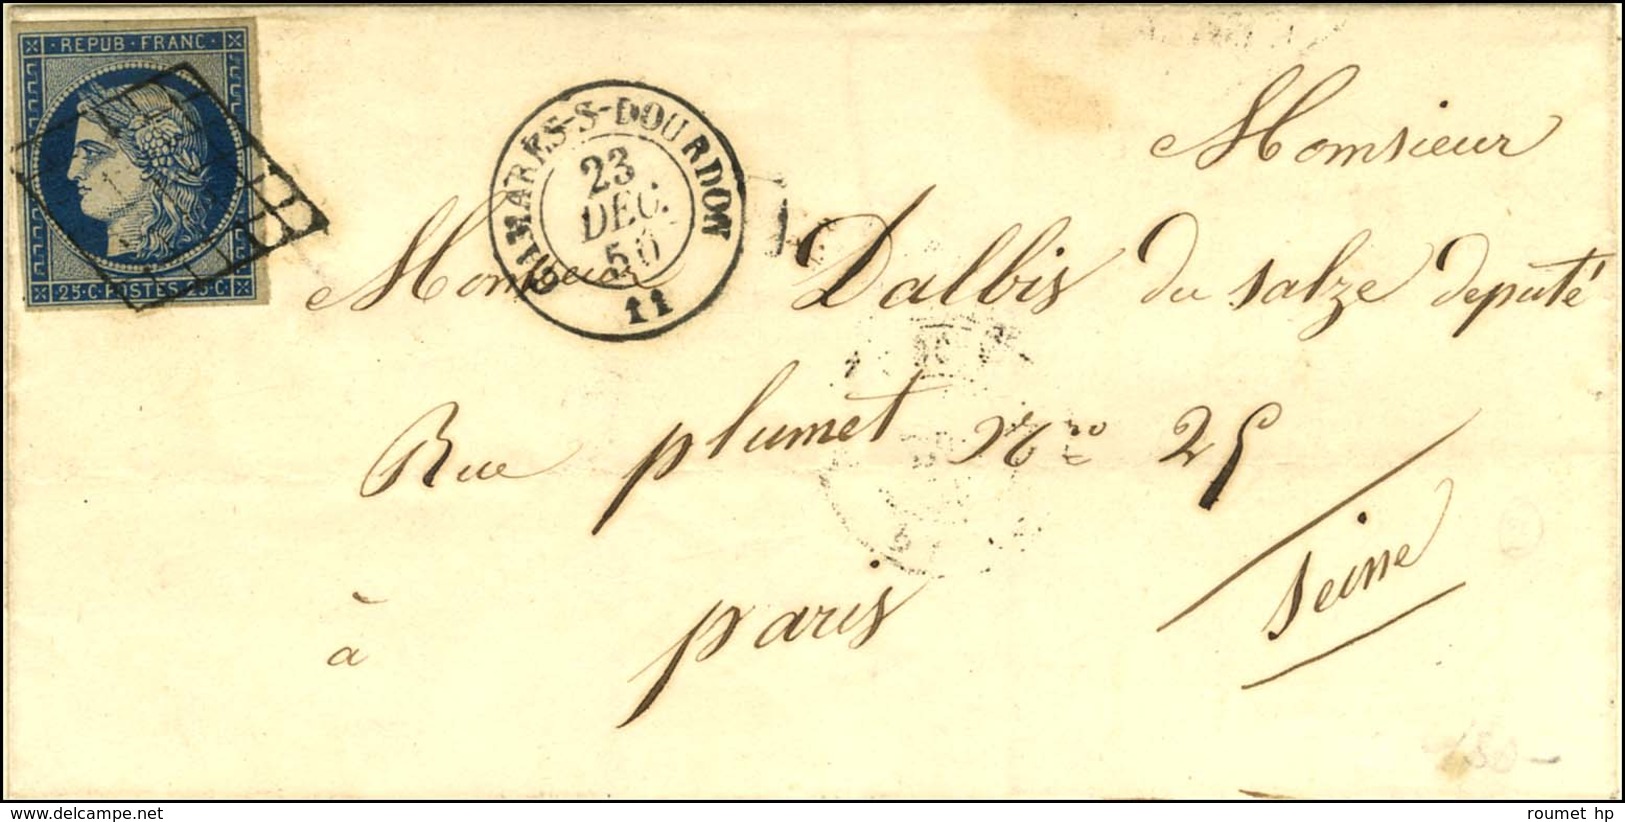 REPUB · FRANC ·
25 · C · POSTES · 25 · C ·
CAMARES-S-DOURDON
23
DEC.
50
11
Monsieur
Monsieur Dalbis du salze deputé
Rue plumet Nro 25
à paris
Seine
roumet hp